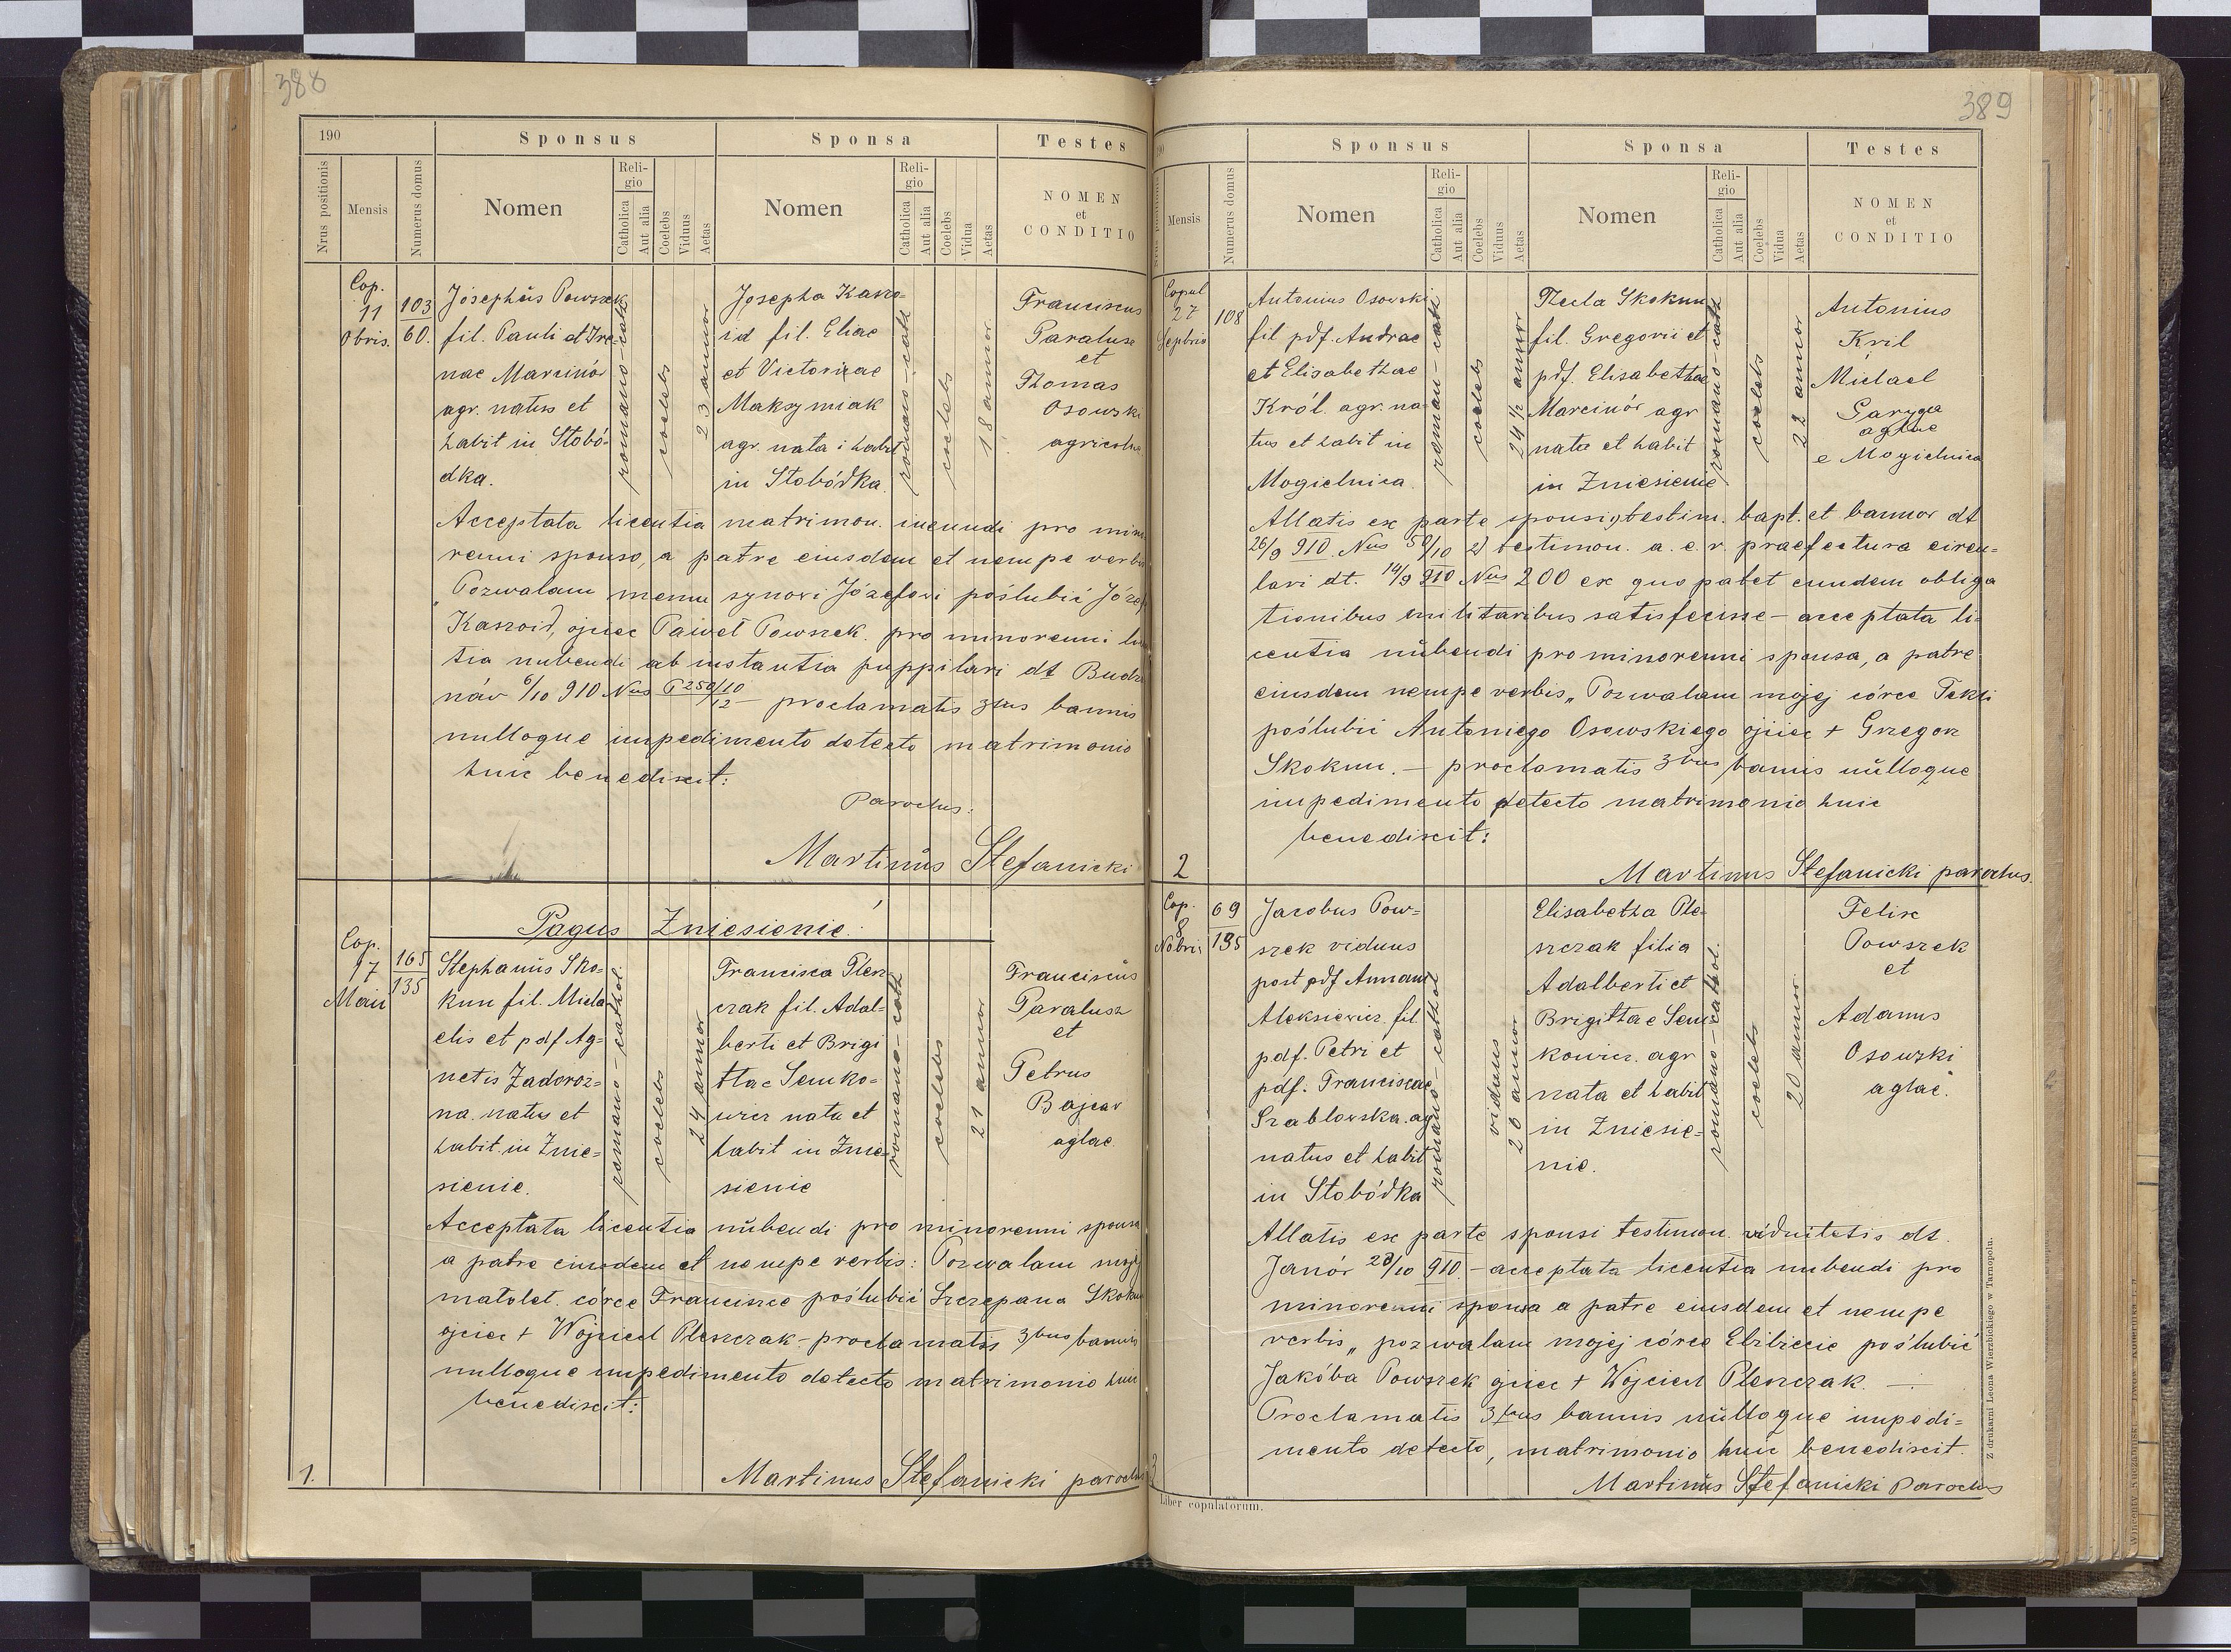 388
190
Sponsus
Sponsa
Testes
Nrus positionis
Mensis
Numerus domus
Nomen
Religio
Catholica
Aut alia
Coelebs
Viduus
Aetas
Nomen
Religio
Catholica
Aut alia
Coelebs
Vidua
Aetas
NOMEN
et
CONDITIO
Cop.
11
Obris.
103
60.
Josephus Powszek
fil. Pauli et Ire=
nae Marcinów
agr. natus et
habit in Słobó-
dka.
romano-cath
coelebs
23 annor
Josepha Kasso=
id fil. Eliae
et Victoriae
Maksymiak
agr. nata i habit
in Słobódka.
romano-cath
coelebs
18 annor
Franciscus
Paralusz
et
Thomas
Osowski
agricolae
Acceptata licentia matrimon. ineundi pro mino
renni sponso, a patre eiusdem et nempe verbis
"Pozwalam memu synowi Józefowi poślubić Józef
Kassoid, ojciec Paweł Powszek. pro minorenni licen
tia nubendi ab instantia puppilari dt Budz
nów 6/10 910 Nus P 250/10/12 — proclamatis 3bus bannis
nulloque impedimento detecto matrimonio
huic benedixit:
Parochus:
Martinus Stefanicki
Pagus Zniesienie!
Cop.
17
Maii
165
135
Stephanus Sko=
kun fil. Micha
elis et pdf Ag=
netis Zadoroż=
na. natus et
habit. in Znie=
sienie.
romano-cathol.
coelebs
24 annor
Francisca Plesz
czak fil. Adal=
berti et Brigi
ttae Semko=
wicz nata et
habit in Znie=
sienie
romano-cath
coelebs
21 annor
Franciscus
Paralusz
et
Petrus
Bajcar
aglae.
Acceptata licentia nubendi pro minorenni sponsa
a patre eiusdem et nempe verbis: Pozwalam mojej
małolet. córce Franciszce poślubić Szczepana Skokun
ojciec + Wojciech Pleszczak - proclamatis 3bus bannis
nulloque impedimento detecto matrimonio huic
benedixit:
1.
Martinus Stefanicki parochus
389
190
Sponsus
Sponsa
Testes
Nrus positionis
Mensis
Numerus domus
Nomen
Religio
Catholica
Aut alia
Coelebs
Viduus
Aetas
Nomen
Religio
Catholica
Aut alia
Coelebs
Vidua
Aetas
NOMEN
et
CONDITIO
Copul
27
Sepbris
108
Antonius Osowski
fil pdf. Andrae
et Elisabethae
Król. agr. na-
tus et habit in
Mogielnica
roman-cath
coelebs
24 1/2 annor
Thecla Skokun
fil. Gregorii et
pdf. Elisabethae
Marcinów agr
nata et habit
in Zniesienie
romano-cath
coelebs
22 annor
Antonius
Król
Michael
Garyga
aglae
e Mogielnica
Allatis ex parte sponsi 1) testim. bapt. et bannor dt
26/9 910. Nus 50/10 2) testimon. a. c. r. praefectura circu=
lari dt. 14/9 910 Nus 200 ex quo patet eundem obliga
tionibus militaribus satisfecisse - acceptata li=
centia nubendi pro minorenni sponsa, a patre
eiusdem nempe verbis „Pozwalam mojej córce Tekli
poślubić Antoniego Osowskiego ojciec + Grzegorz
Skokun. — proclamatis 3bus bannis nulloque
impedimento detecto matrimonio huic
benedixit:
2
Martinus Stefanicki parochus.
Cop.
8
Nobris
69
135
Jacobus Pow=
szek viduus
post pdf Annam
Aleksiewicz fil.
pdf. Petri et
pdf. Franciscae
Szablowska. ag
natus et habit
in Słobódka
romano-cathol
viduus
26 annor
Elisabetha Ple-
szczak filia
Adalberti et
Brigittae Sem
kowicz. agr
nata et habit
in Zniesie=
nie.
romano-cathol.
coelebs
20 annor
Felix
Powszek
et
Adamus
Osowski
aglae.
Allatis ex parte sponsi testimon. viduitatis dt.
Janów 28/10 910. - acceptata licentia nubendi pro
minorenni sponsa a patre eiusdem et nempe
verbis „pozwalam mojej córce Elżbiecie poślubić
Jakóba Powszek ojciec + Wojciech Pleszczak. —
Proclamatis 3bus bannis nulloque impedi=
mento detecto, matrimonio huic benedixit.
3
Martinus Stefanicki Parochus
Liber copulatorum.
Z drukarni Leona Wierzbickiego w Tarnopolu.